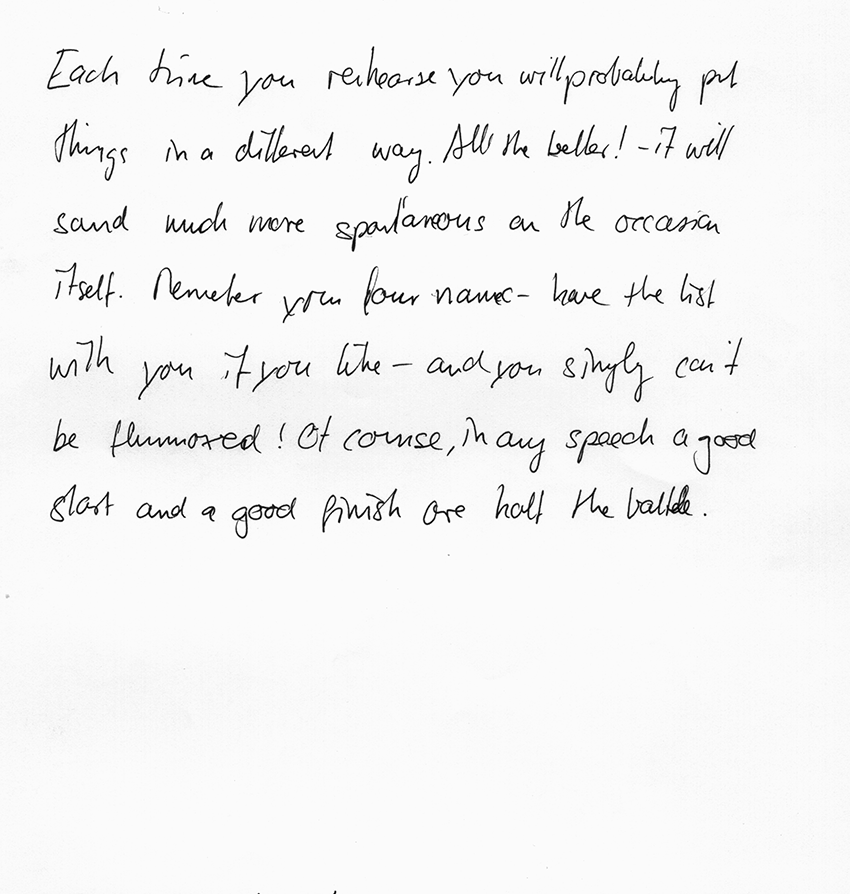 Each time you rehearse you will probably put
things in a different way. All the better! - it will
sound much more spontaneous on the occasion
itself. Remember your four names - have the list
with you if you like - and you simply can't
be flummoxed! Of course, in any speech a good
start and a good finish are half the battle.